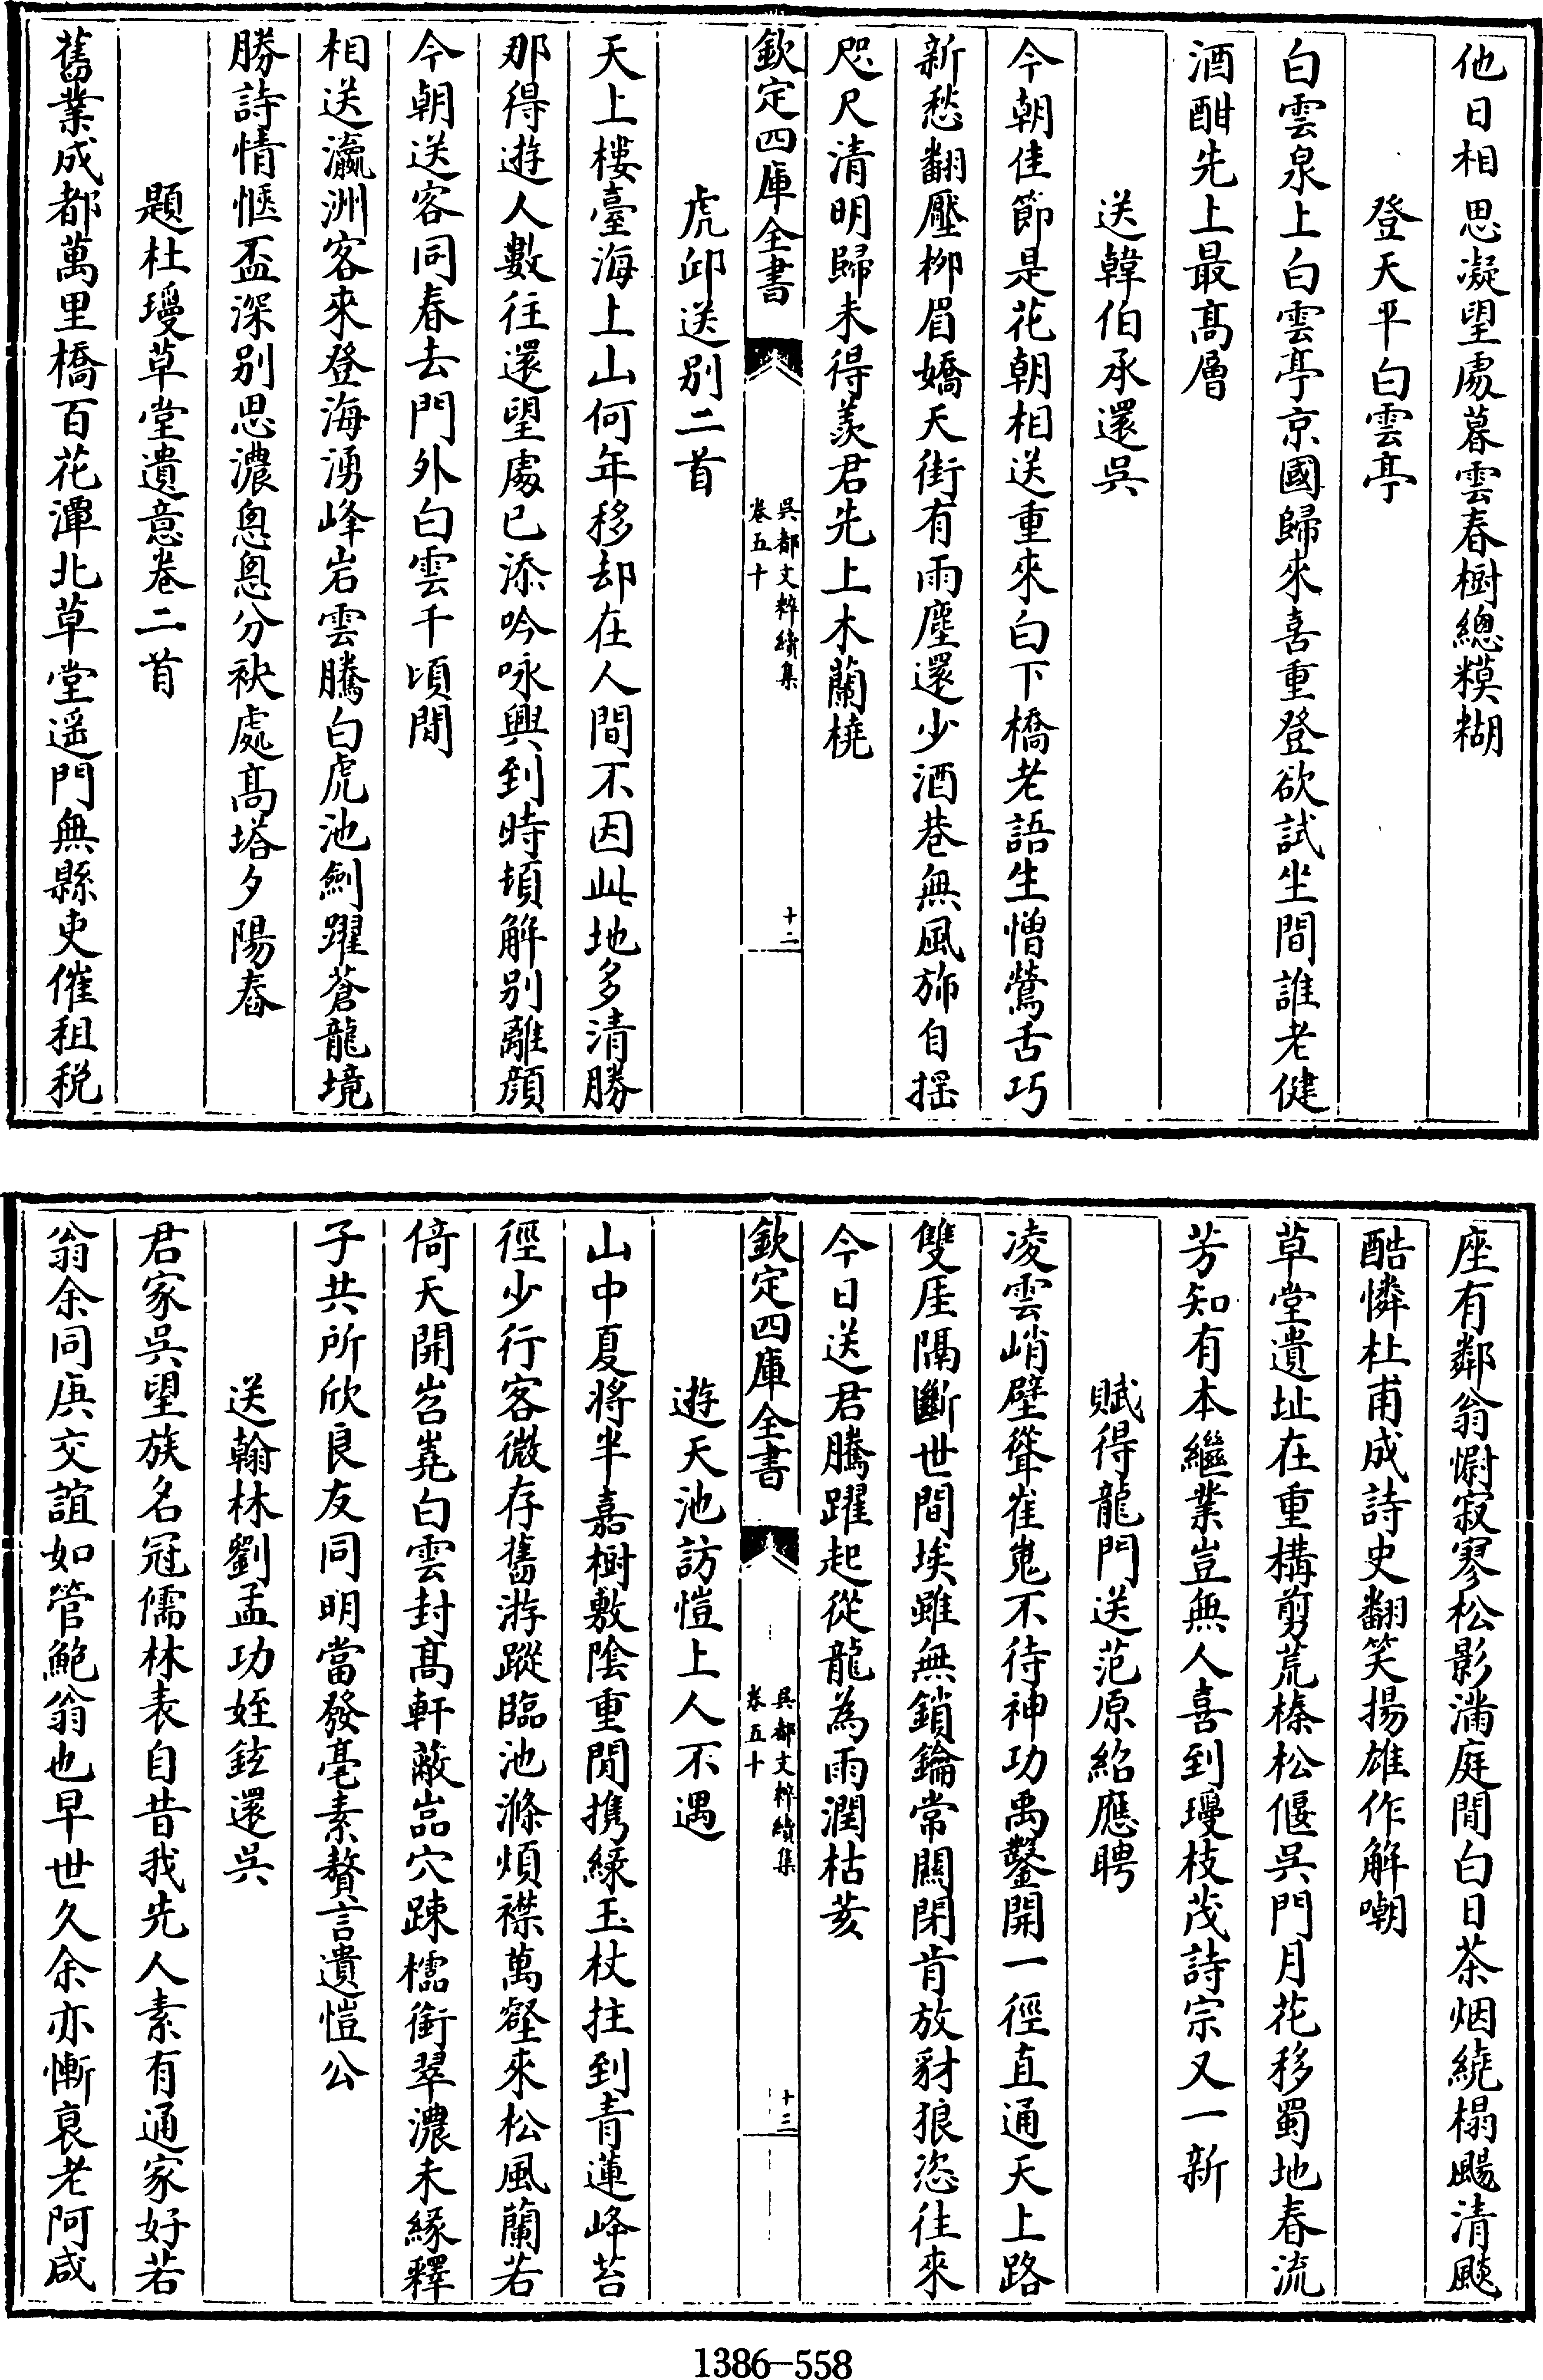 他日相思凝望處暮雲春樹總糢糊
登天平白雲亭
白雲泉上白雲亭京國歸來喜重登欲試坐間誰老健
酒酣先上最髙層
送韓伯承還吳
今朝佳節是花朝相送重來白下橋老語生憎鶯舌巧
新愁翻壓栁眉嬌天街有雨塵還少酒巷無風斾自揺
咫尺清明歸未得羨君先上木蘭橈
欽定四庫全書
吳都文粹續集
卷五十
十二
虎邱送别二首
天上樓臺海上山何年移却在人間不因此地多清勝
那得遊人數往還望處已添吟咏興到時頓解别離顔
今朝送客同春去門外白雲千頃閒
相送瀛洲客來登海湧峰岩雲騰白虎池劍躍蒼龍境
勝詩情愜盃深别思濃怱怱分袂處髙塔夕陽舂
題杜瓊草堂遺意卷二首
舊業成都萬里橋百花潭北草堂遥門無縣吏催租税
座有鄰翁慰寂寥松影滿庭閒白日茶烟繞榻颺清飈
酷憐杜甫成詩史翻笑揚雄作解嘲
草堂遺址在重構剪荒榛松偃吳門月花移蜀地春流
芳知有本繼業豈無人喜到瓊枝茂詩宗又一新
賦得龍門送范原紹應聘
凌雲峭壁聳崔嵬不待神功禹鑿開一徑直通天上路
雙厓隔斷世間埃雖無鎖鑰常闗閉肯放豺狼恣往來
今日送君騰躍起從龍為雨潤枯荄
欽定四庫全書
吳都文粹續集
卷五十
十三
遊天池訪愷上人不遇
山中夏将半嘉樹敷陰重閒携緑玉杖拄到青蓮峰苔
徑少行客微存舊游蹤臨池滌煩襟萬壑來松風蘭若
倚天開岧嶤白雲封髙軒蔽嵓穴踈櫺銜翠濃未緣釋
子共所欣良友同明當發毫素贅言遺愷公
送翰林劉孟功姪鉉還吳
君家吳望族名冠儒林表自昔我先人素有通家好若
翁余同庚交誼如管鮑翁也早世久余亦慚衰老阿咸
1386-558